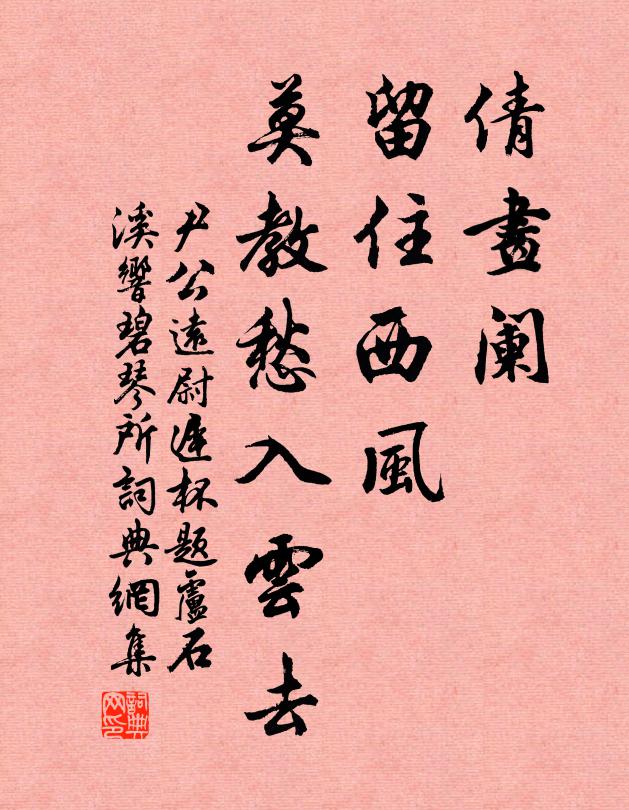 倩畫闌
留住西風
莫教愁入雲去
尹公遠尉遲杯題盧石
溪響碧琴所詞典網集
詞典网印